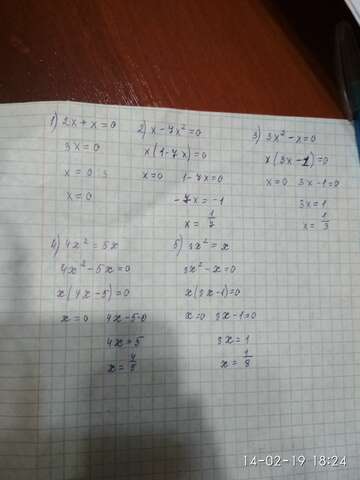 1) 2x + x = 0
3x = 0
x = 0 : 3
x = 0
2) x - 7x² = 0
x(1-7x) = 0
x=0 1-7x=0
-7x = -1
x = 1/7
3) 3x² - x = 0
x(3x-1) = 0
x=0 3x-1=0
3x=1
x = 1/3
4) 4x² = 5x
4x² - 5x = 0
x(4x-5) = 0
x = 0 4x-5=0
4x = 5
x = 4/5
5) 3x² = x
3x² - x = 0
x(3x-1) = 0
x=0 3x-1=0
3x = 1
x = 1/3
14-02-19 18:24